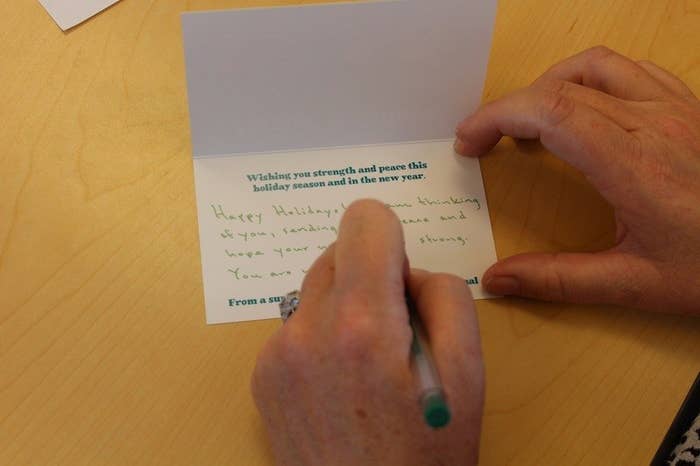 Wishing you strength and peace this
holiday season and in the new year.
Happy Holidays thinking
of you, sending peace and
hope your strong.
You are
From a